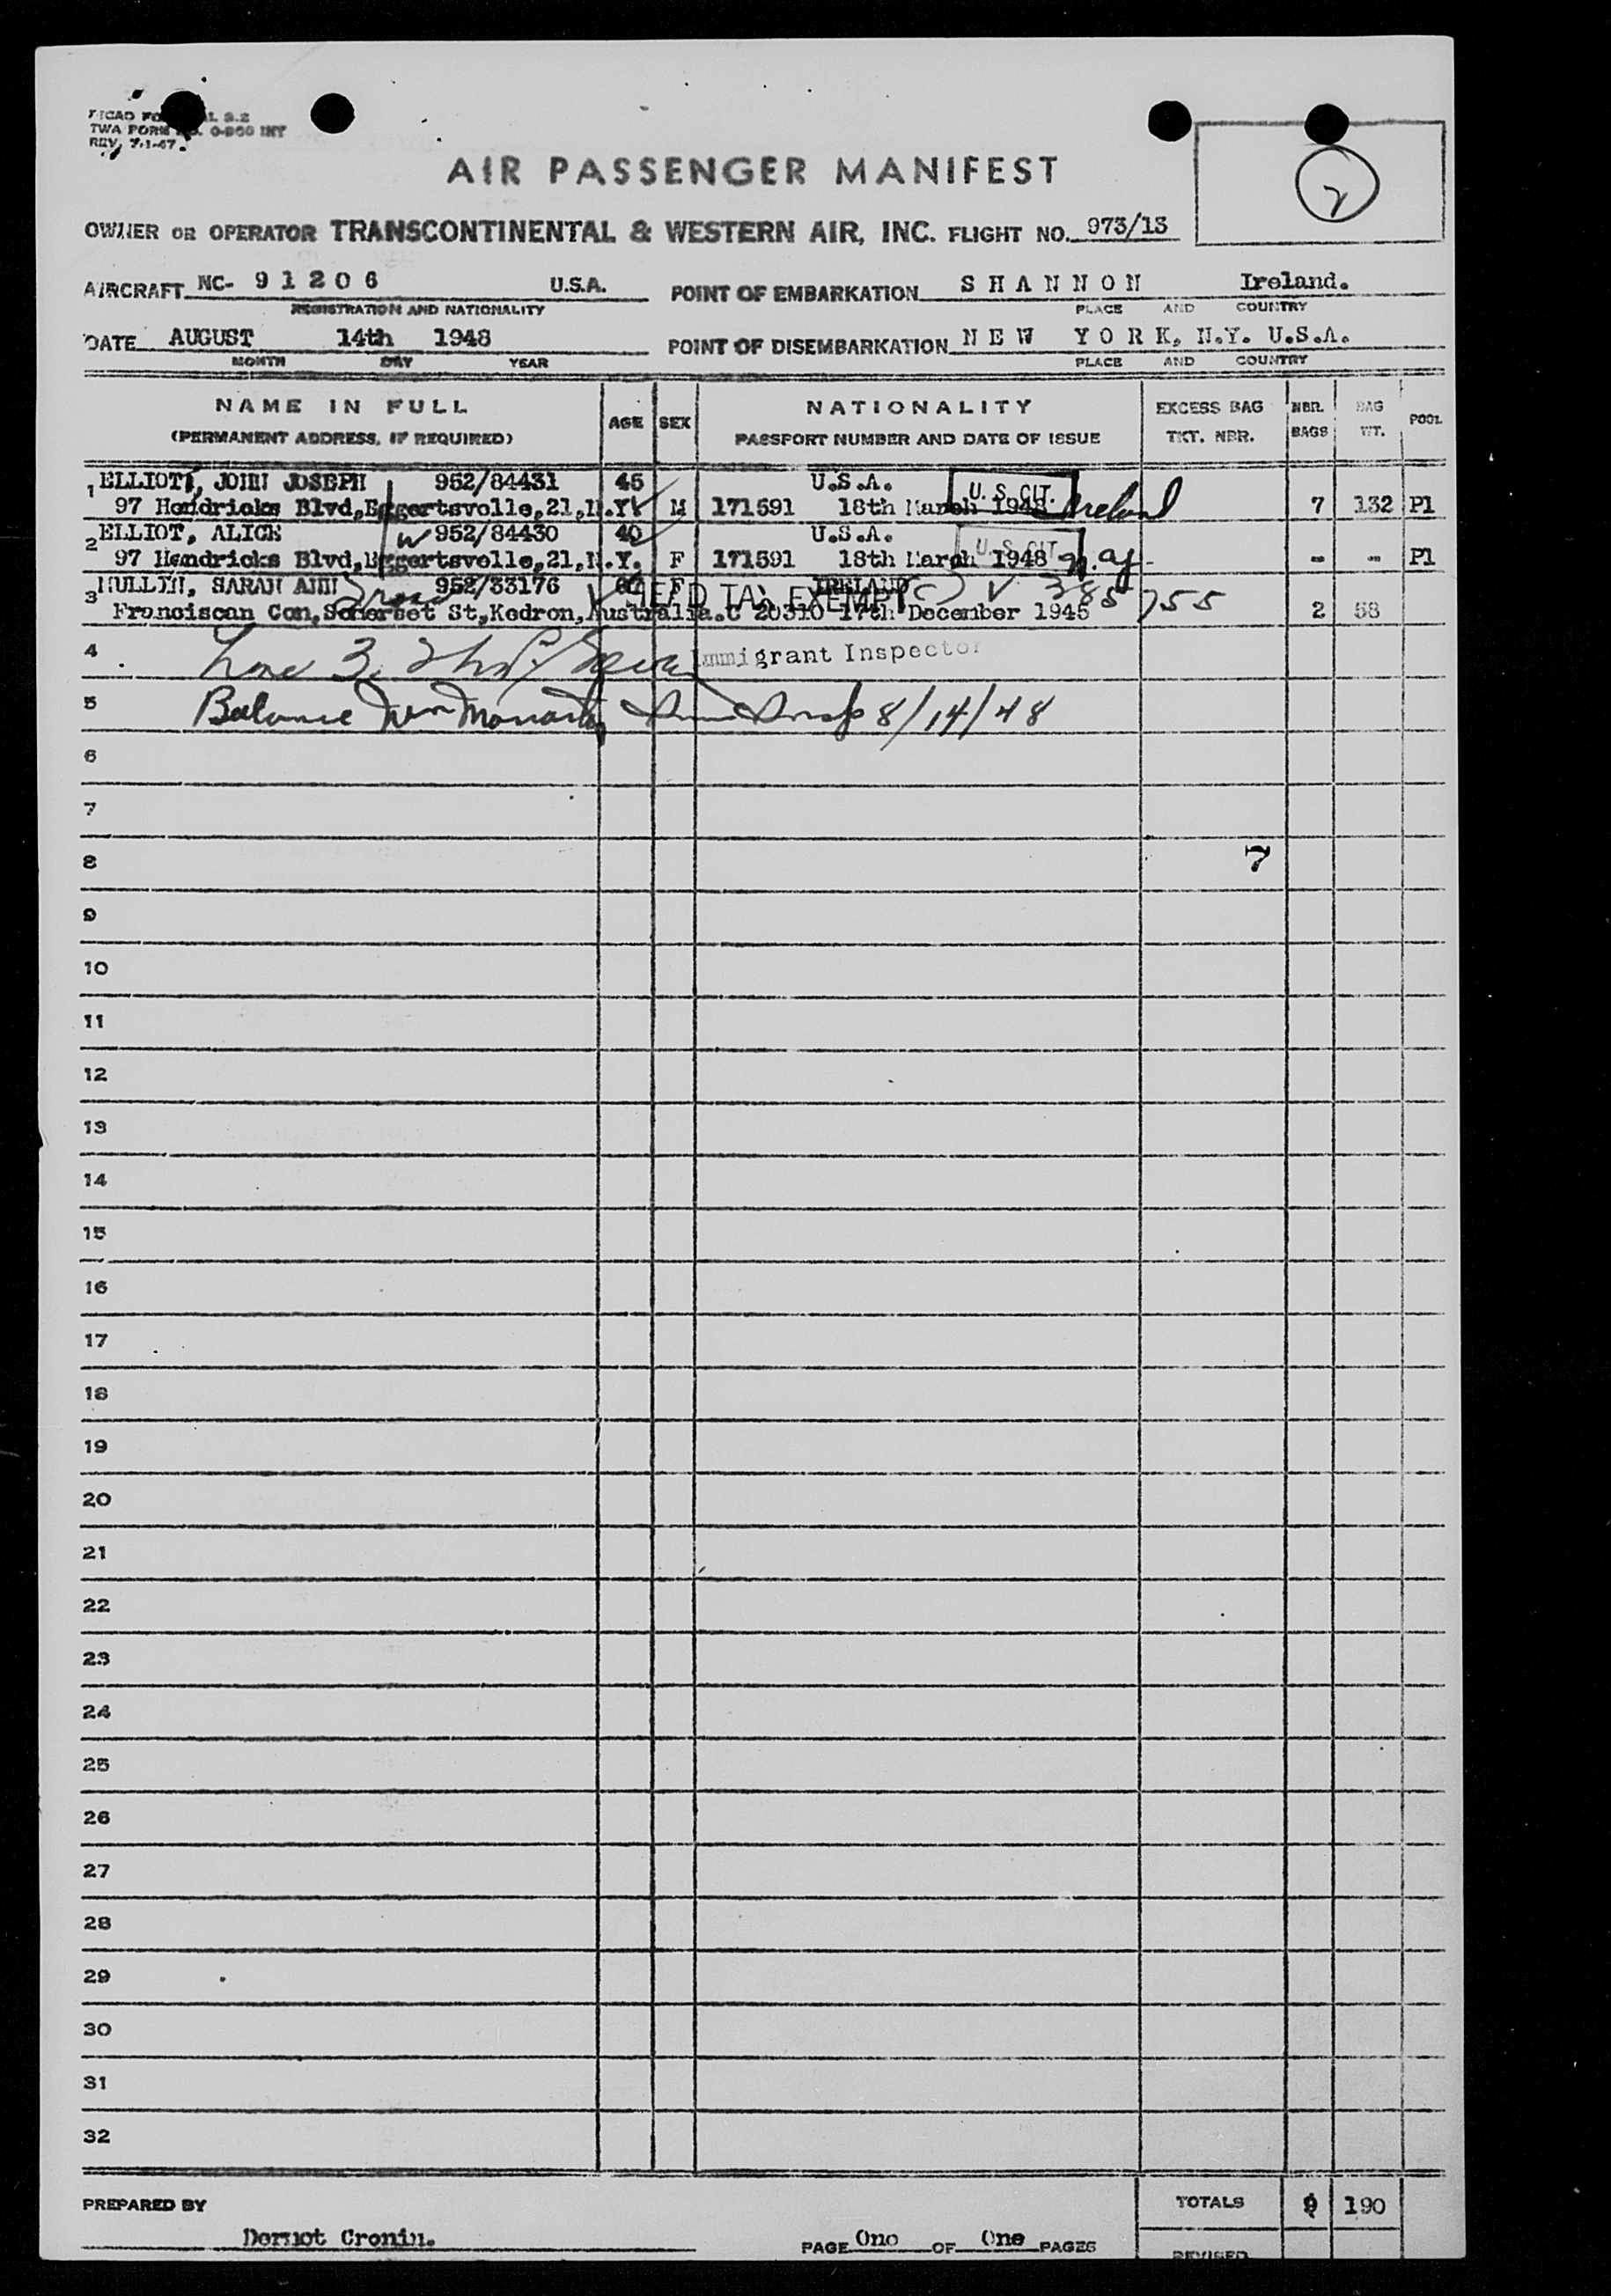 TWA FORM NO. 0-960 INT
REV. 7-1-47
AIR PASSENGER MANIFEST
2
OWNER OR OPERATOR TRANSCONTINENTAL & WESTERN AIR, INC. FLIGHT NO. 973/13
AIRCRAFT NC- 9 1 2 0 6 U.S.A. POINT OF EMBARKATION S H A N N O N Ireland.
REGISTRATION AND NATIONALITY PLACE AND COUNTRY
DATE AUGUST 14th 1948 POINT OF DISEMBARKATION N E W Y O R K, N.Y. U.S.A.
MONTH DAY YEAR PLACE AND COUNTRY
NAME IN FULL AGE SEX NATIONALITY EXCESS BAG NBR. BAG POOL
(PERMANENT ADDRESS, IF REQUIRED) PASSPORT NUMBER AND DATE OF ISSUE TKT. NBR. BAGS WT.
1 ELLIOTT, JOHN JOSEPH 952/84431 45 U.S.A. U. S. CIT.
97 Hendricks Blvd, Eggertsvolle, 21, N.Y. M 171591 18th March 1948 Ireland 7 132 P1
2 ELLIOT, ALICE W 952/84430 40 U.S.A. U. S. CIT.
97 Hendricks Blvd, Eggertsvelle, 21, N.Y. F 171591 18th March 1948 n.y - - P1
3 MULLEN, SARAH ANN 952/33176 F IRELAND HEAD TAX EXEMPT V 385755
Franciscan Con, Somerset St, Kedron, Australia. C 20310 17th December 1945 2 58
4 Line 3 Immigrant Inspector
5 Balance 8/14/48
6
7
8 7
9
10
11
12
13
14
15
16
17
18
19
20
21
22
23
24
25
26
27
28
29
30
31
32
PREPARED BY TOTALS 9 190
Dermot Cronin.
PAGE One OF One PAGES REVISED